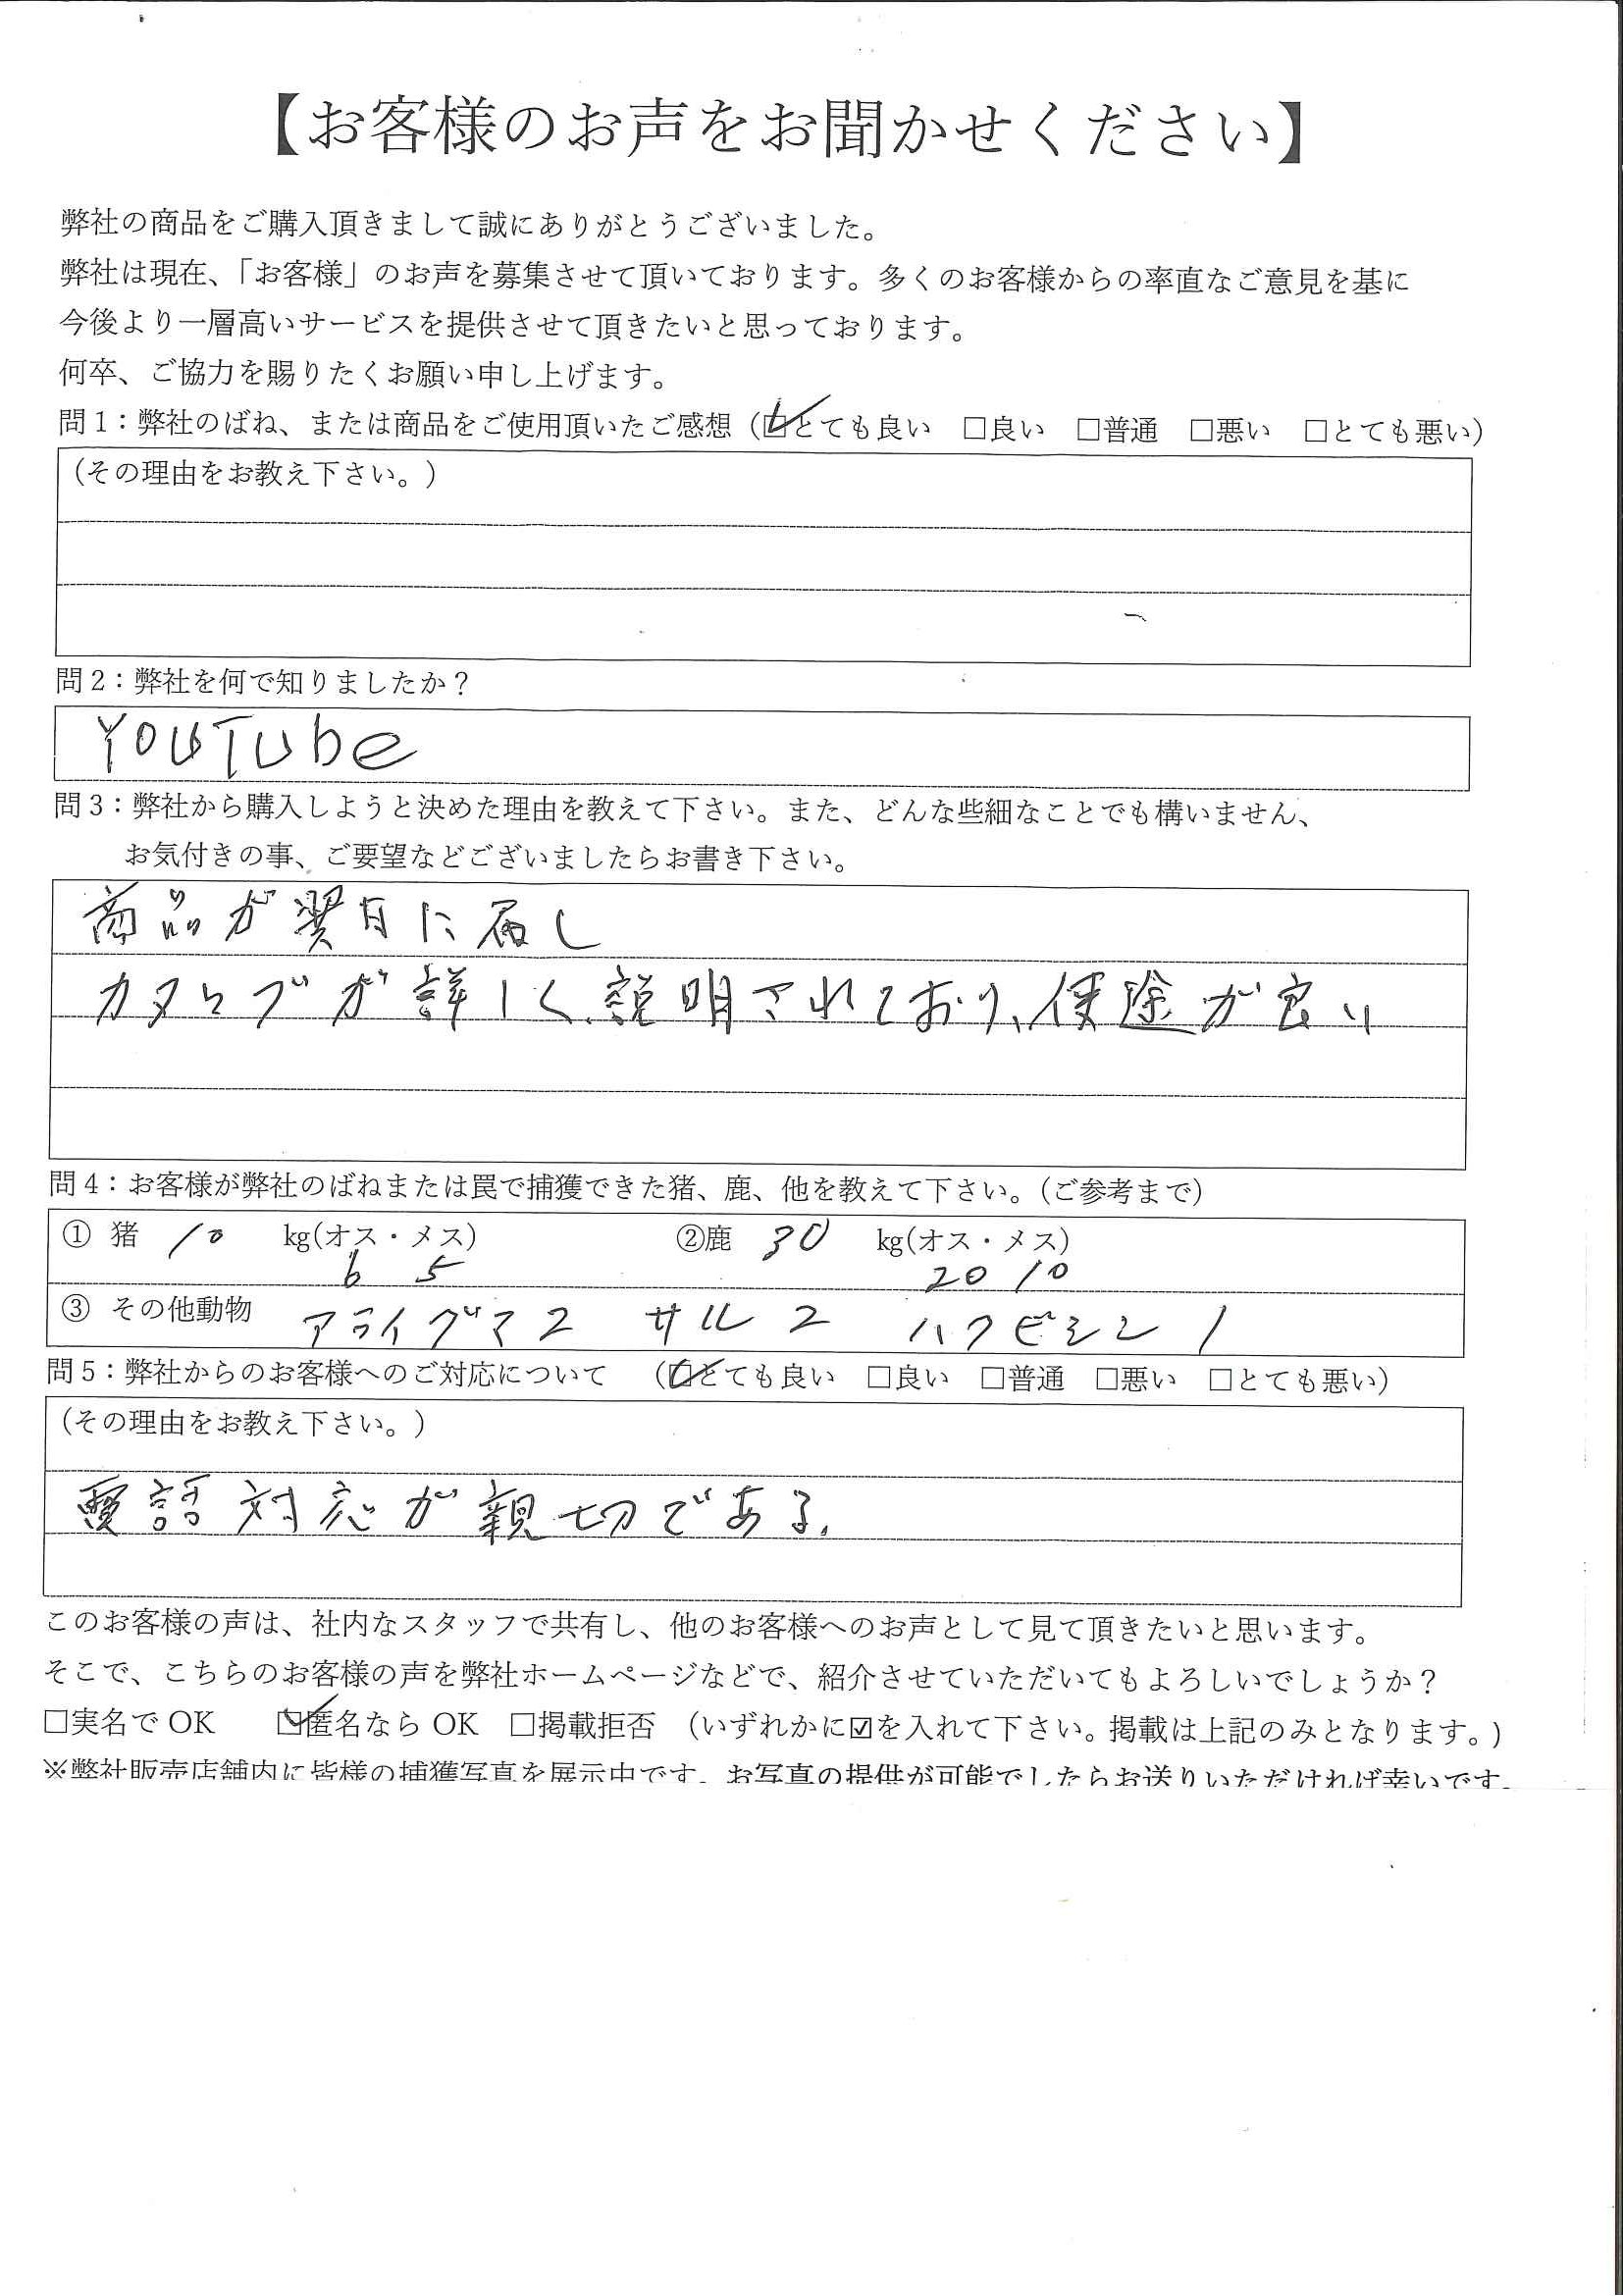 【お客様のお声をお聞かせください】
弊社の商品をご購入頂きまして誠にありがとうございました。
弊社は現在、「お客様」のお声を募集させて頂いております。多くのお客様からの率直なご意見を基に
今後より一層高いサービスを提供させて頂きたいと思っております。
何卒、ご協力を賜りたくお願い申し上げます。
問1：弊社のばね、または商品をご使用頂いたご感想（☑とても良い　□良い　□普通　□悪い　□とても悪い）
（その理由をお教え下さい。）
問2：弊社を何で知りましたか？
YouTube
問3：弊社から購入しようと決めた理由を教えて下さい。また、どんな些細なことでも構いません、
お気付きの事、ご要望などございましたらお書き下さい。
商品が翌日に届し
カタログが詳しく、説明されており、使途が良い
問4：お客様が弊社のばねまたは罠で捕獲できた猪、鹿、他を教えて下さい。（ご参考まで）
① 猪　10　kg(オス・メス)　②鹿　30　kg(オス・メス)
6　5　20　10
③ その他動物　アライグマ2　サル2　ハクビシン1
問5：弊社からのお客様へのご対応について　（☑とても良い　□良い　□普通　□悪い　□とても悪い）
（その理由をお教え下さい。）
電話対応が親切である。
このお客様の声は、社内なスタッフで共有し、他のお客様へのお声として見て頂きたいと思います。
そこで、こちらのお客様の声を弊社ホームページなどで、紹介させていただいてもよろしいでしょうか？
□実名でOK　☑匿名ならOK　□掲載拒否　（いずれかに☑を入れて下さい。掲載は上記のみとなります。)
※弊社販売店舗内に皆様の捕獲写真を展示中です。お写真の提供が可能でしたらお送りいただければ幸いです。